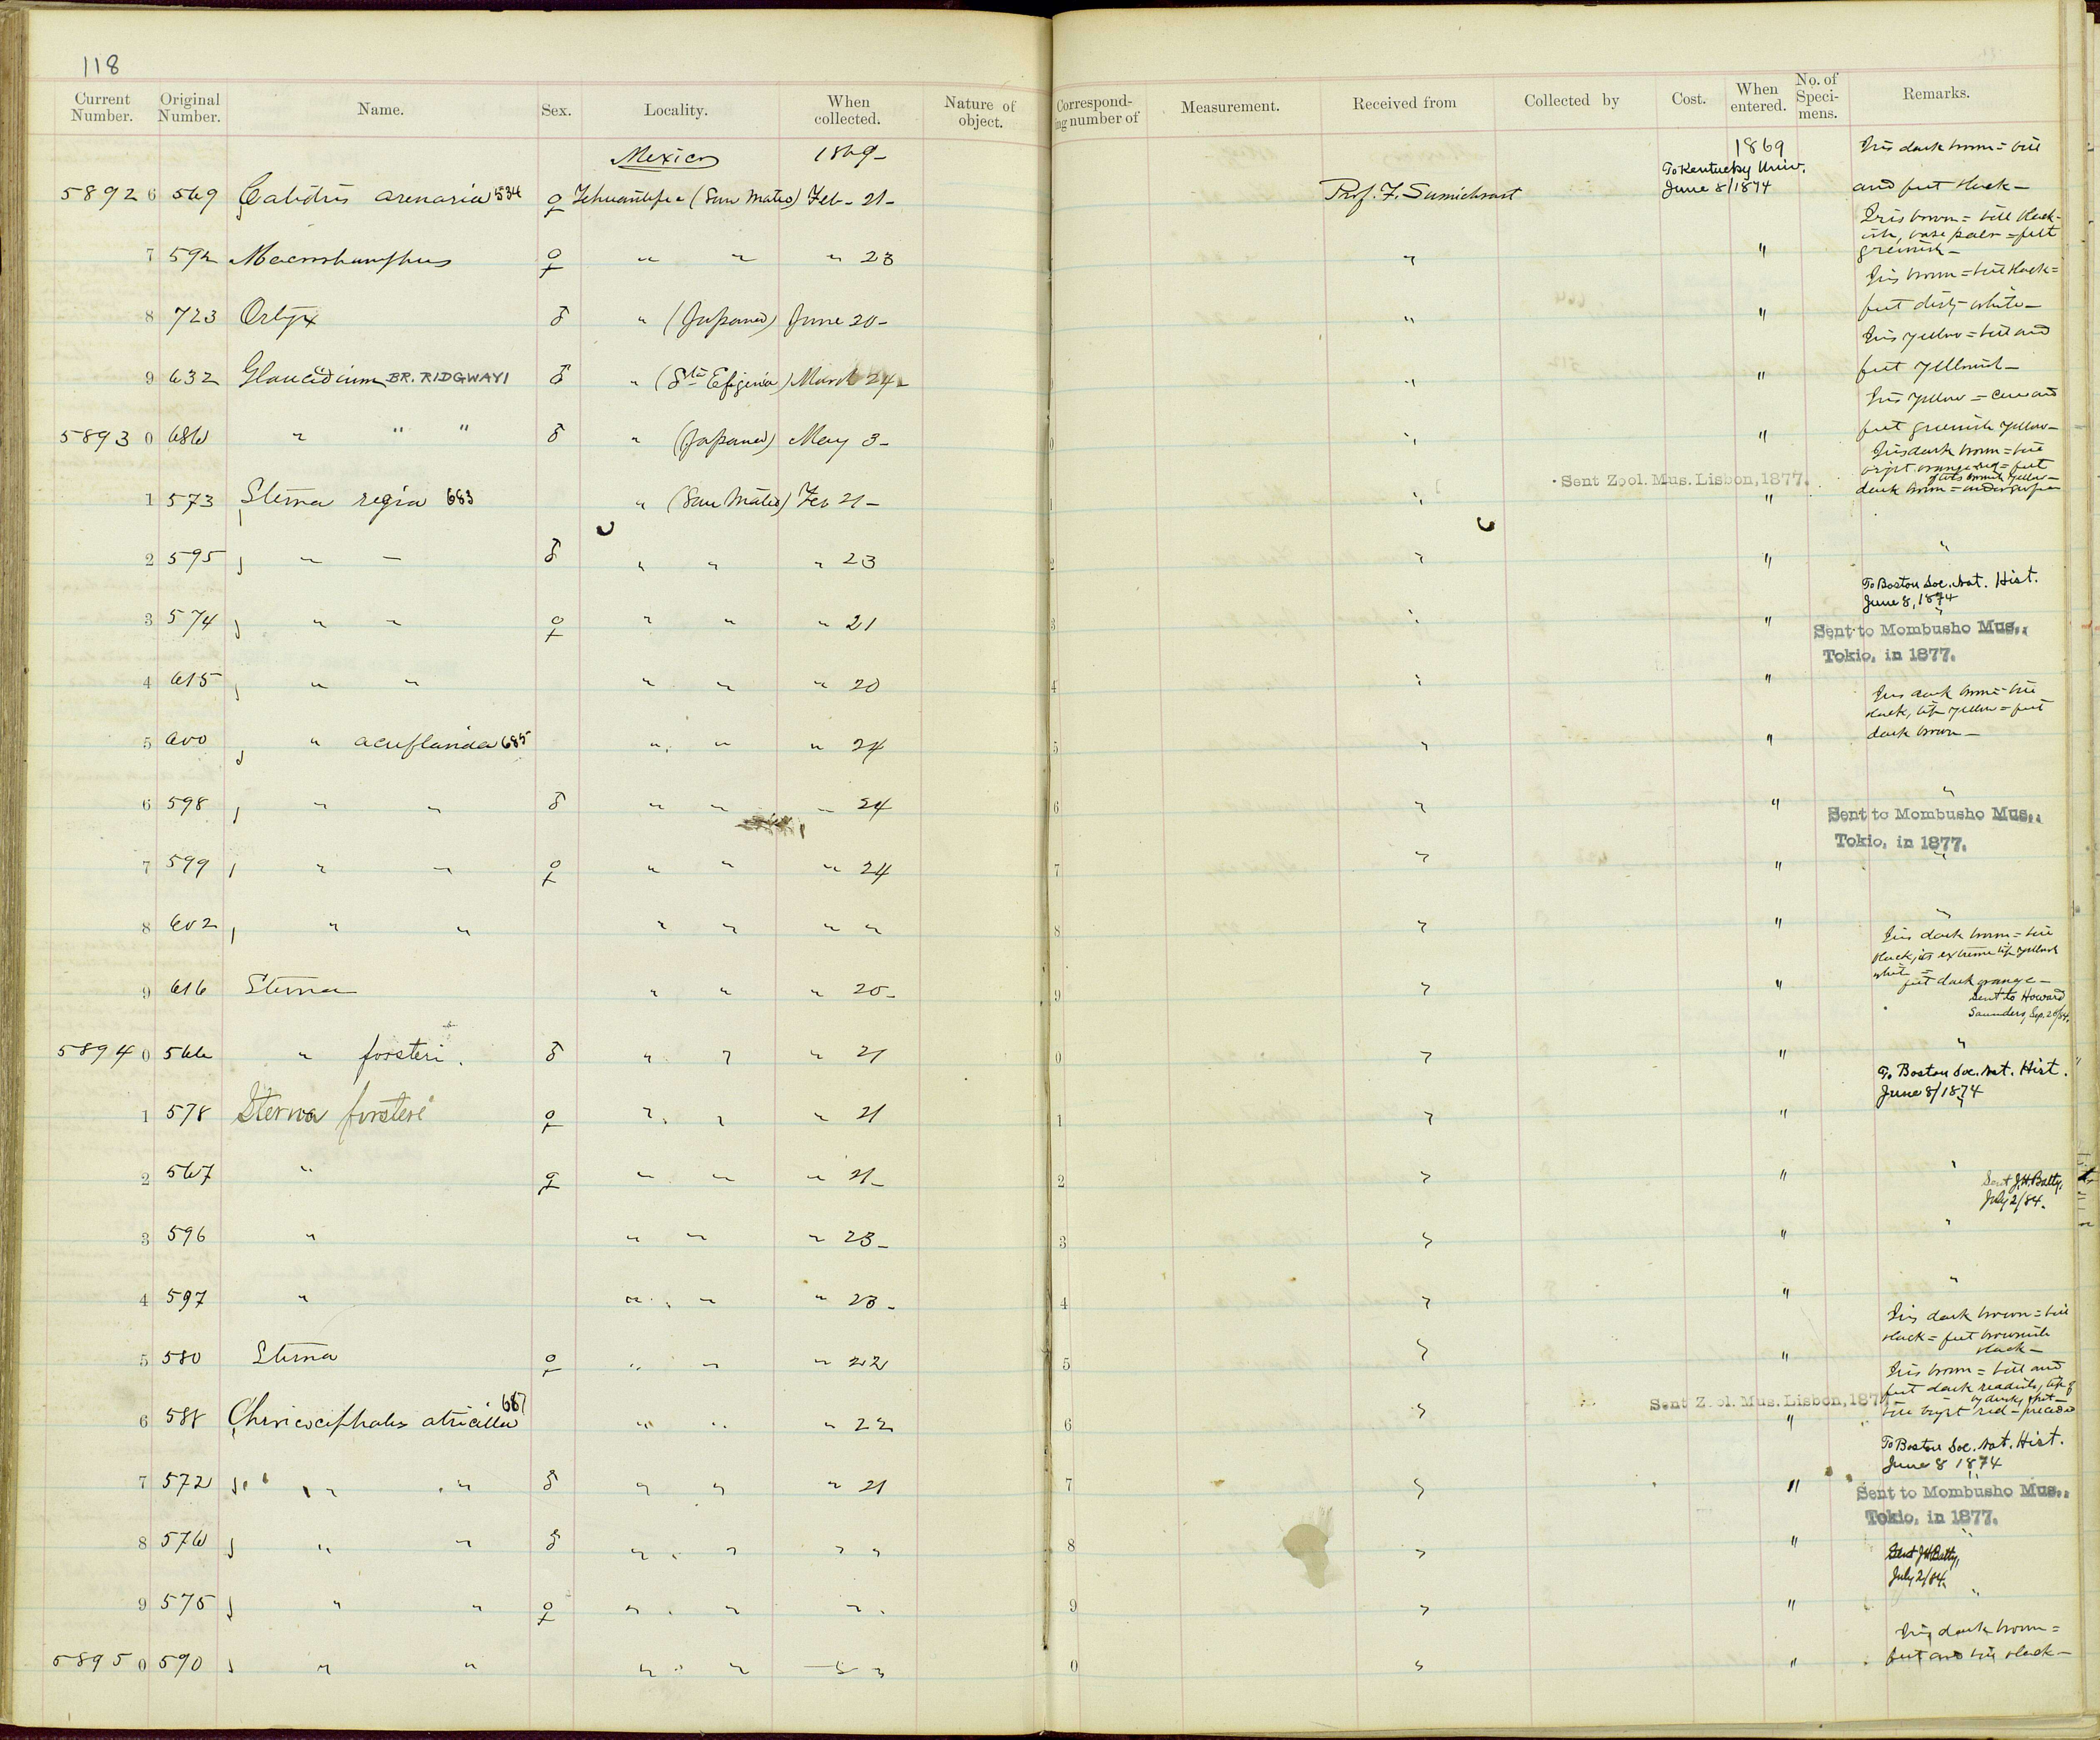 118
Current Number. Original Number. Name. Sex. Locality. When collected. Nature of object. Correspond-ing number of Measurement. Received from Collected by Cost. When entered. No. of Speci-mens. Remarks.
Mexico 1869- 1869 Iris dark brown = bill
To Kentucky Univ.
5892 6 569 Calidris arenaria 534 ♀ Tehuantepec (San Mateo) Feb - 21- Prof. F. Sumichrast June 8/1874 and feet black -
Iris brown = bill black-
ish, base paler = feet
7 592 Macrorhamphus ♀ " " " 23 " " greenish -
Iris brown = bill black =
8 723 Ortyx ♂ " (Japana) June 20- " " feet dirty white -
Iris yellow = bill and
9 632 Glaucidium BR. RIDGWAYI ♂ " (Sta Efigenia) March 24- " " feet yellowish -
Iris yellow = cere and
5893 0 686 " " " ♂ " (Japana) May 3- " " feet greenish yellow -
Iris dark brown = bill
bright orange red = feet
Sent Zool. Mus. Lisbon, 1877.
1 573 Sterna regia 683 " (San Mateo) Feb 21- " " dark brown =
2 595 " - ♂ " " " 23 " " "
To Boston Soc. Nat. Hist.
June 8, 1874
3 574 " " ♀ " " " 21 " " "
Sent to Mombusho Mus.,
Tokio, in 1877.
4 615 " " " " " 20 " "
Iris dark brown = bill
black, tip yellow = feet
5 600 " acuflavida 685 " " " 24 " " dark brown -
6 598 " " ♂ " " - 24 " " "
Sent to Mombusho Mus.,
Tokio, in 1877.
7 599 " " ♀ " " " 24 " " "
8 602 " " " " " " " " "
Iris dark brown = bill
black, its extreme tip yellowish
white =
9 616 Sterna " " " 20- " " feet dark orange -
Sent to Howard
Saunders, Sep. 20/84.
5894 0 566 " forsteri. ♂ " " " 21 " " "
To Boston Soc. Nat. Hist.
June 8/1874
1 578 Sterna forsteri ♀ " " " 21 " " "
2 567 " ♀ " " " 21- " " "
Sent J.H. Batty,
July 2/84.
3 596 " " " " 23- " " "
4 597 " " " " 23- " " "
Iris dark brown = bill
black = feet brownish
5 580 Sterna ♀ " " " 22 " " black -
Iris brown = bill and
feet dark reddish, tip of
Sent Zool. Mus. Lisbon, 187
6 588 Chroicocephalus atricilla 687 " " " 22 " " bill bright red - preceded
by dusky spot -
To Boston Soc. Nat. Hist.
June 8 1874
7 572 " " ♂ " " " 21 " " "
Sent to Mombusho Mus.,
Tokio, in 1877.
8 576 " " ♂ " " " " " " "
Sent J.H. Batty,
July 2/84.
9 575 " " ♀ " " " " " "
Iris dark brown =
5895 0 590 " " " " " " " " feet and bill black -